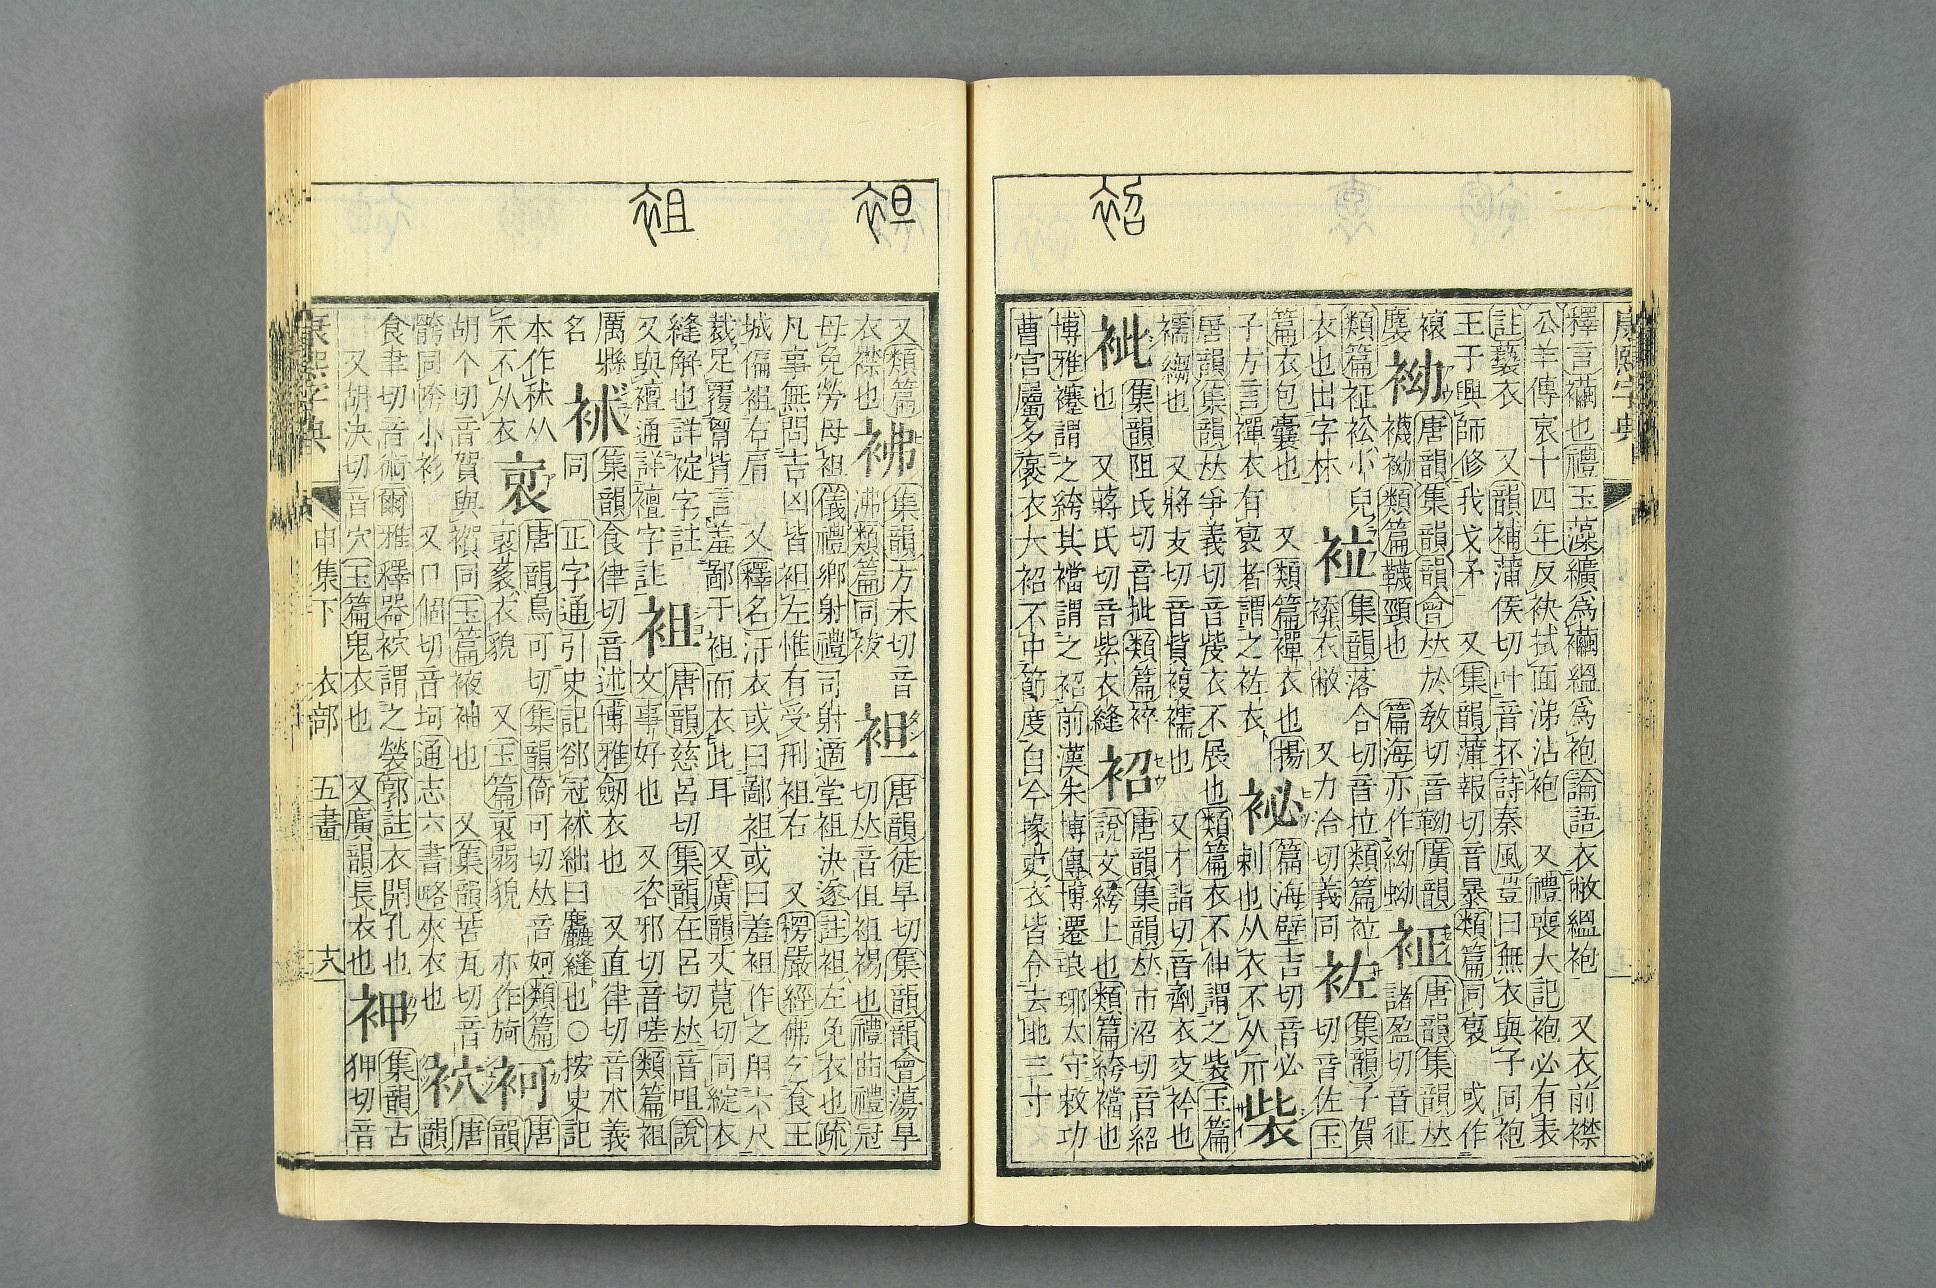 康熙字典
釋言襺也禮玉藻纊爲襺縕爲袍論語衣敝縕袍 又衣前襟
公羊傳哀十四年反袂拭面涕沾袍 又禮喪大記袍必有表
註褻衣 又韻補蒲侯切叶音抔詩秦風豈曰無衣與子同袍
王于興師修我戈矛 又集韻薄報切音暴類篇同裒 或作
袎
唐韻集韻韻會𠀤於敎切音靿廣韻
襪袎類篇韈頸也 篇海亦作
唐韻集韻𠀤
諸盈切音征
類篇 衳小兒
衣也出字林
集韻落合切音拉類篇
衣敝 又力洽切義同
袏
集韻子賀
切音佐玉
篇衣包囊也 又類篇襌衣也揚
子方言襌衣有裏者謂之袏衣
袐
篇海壁吉切音必
刺也从衣不从示
唐韻集韻𠀤爭義切音 衣不展也類篇衣不伸謂之 玉篇
襦 也 又將支切音貲複襦也 又才詣切音劑衣交衿也
集韻阻氏切音 類篇
也 又蔣氏切音紫衣縫
袑
唐韻集韻𠀤市沼切音紹
說文絝上也類篇絝襠也
博雅 謂之絝其襠謂之袑前漢朱博傳博遷琅邪太守敕功
曹官屬多襃衣大袑不中節度自今掾吏衣皆令去地三寸
袑
袒
袓
又類篇
衣襟也
集韻方未切音
沸類篇同
袒
唐韻徒旱切集韻韻會蕩旱
切𠀤音但袒裼也禮曲禮冠
毋免勞毋袒儀禮鄕射禮司射適堂袒決遂註袒左免衣也疏
凡事無問吉凶皆袒左惟有受刑袒右 又楞嚴經佛乞食王
城偏袒右肩 又釋名汗衣或曰鄙袒或曰羞袒作之用六尺
裁足覆胷背言羞鄙于袒而衣此耳 又廣韻丈莧切同綻衣
縫解也詳 字註
又與襢通詳襢字註
袓
唐韻慈呂切集韻在呂切𠀤音咀說
文事好也 又咨邪切音嗟類篇袓
厲縣
名
集韻食律切音述博雅劒衣也 又直律切音朮義
同 正字通引史記卻冠 絀曰麤縫也○按史記
本作秫从
禾不从衣
唐韻烏可切集韻倚可切𠀤音妸類篇
衣貌 又玉篇 弱貌 亦作
袔
唐
韻
胡个切音賀與 同玉篇 袖也 又集韻苦瓦切音
髂同 小衫 又口個切音坷通志六書略夾衣也
袕
唐
韻
食聿切音術爾雅釋器袕謂之褮郭註衣開孔也
又胡決切音穴玉篇鬼衣也 又廣韻長衣也
䘥
集韻古
狎切音
康熙字典 申集下 衣部 五畫 十八